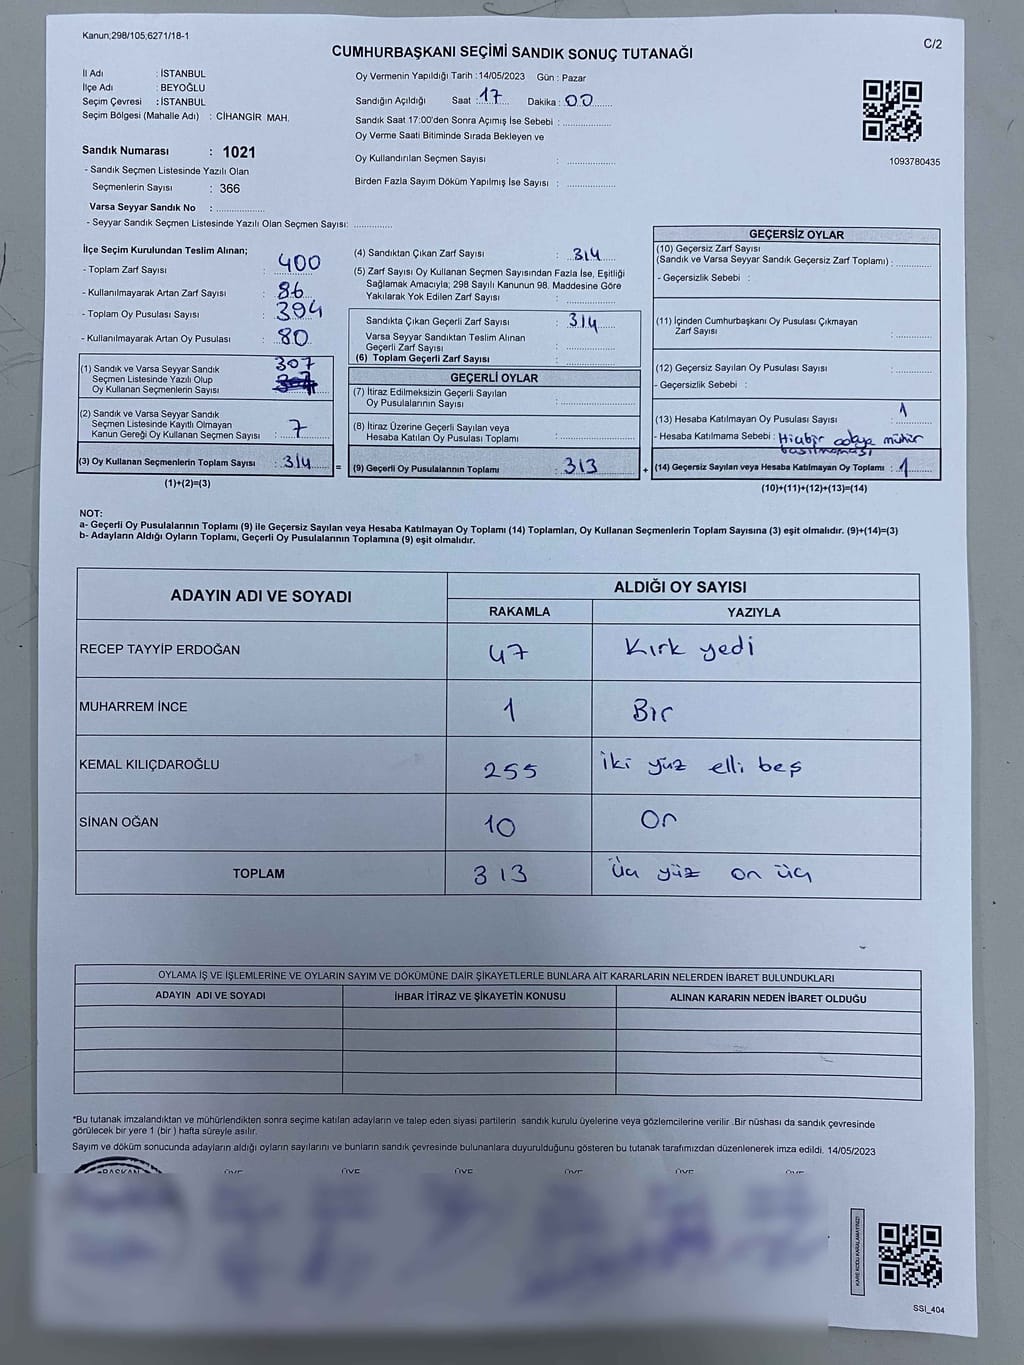 Kanun;298/105;6271/18-1
C/2
CUMHURBAŞKANI SEÇİMİ SANDIK SONUÇ TUTANAĞI
İl Adı : İSTANBUL
İlçe Adı : BEYOĞLU
Seçim Çevresi : İSTANBUL
Seçim Bölgesi (Mahalle Adı) : CİHANGİR MAH.
Oy Vermenin Yapıldığı Tarih :14/05/2023 Gün : Pazar
Sandığın Açıldığı Saat : 17 Dakika : 00
Sandık Saat 17:00'den Sonra Açımış İse Sebebi :
Oy Verme Saati Bitiminde Sırada Bekleyen ve
Oy Kullandırılan Seçmen Sayısı :
Birden Fazla Sayım Döküm Yapılmış İse Sayısı :
1093780435
Sandık Numarası : 1021
- Sandık Seçmen Listesinde Yazılı Olan
Seçmenlerin Sayısı : 366
Varsa Seyyar Sandık No :
- Seyyar Sandık Seçmen Listesinde Yazılı Olan Seçmen Sayısı:
İlçe Seçim Kurulundan Teslim Alınan;
- Toplam Zarf Sayısı : 400
- Kullanılmayarak Artan Zarf Sayısı : 86
- Toplam Oy Pusulası Sayısı : 394
- Kullanılmayarak Artan Oy Pusulası : 80
(1) Sandık ve Varsa Seyyar Sandık
Seçmen Listesinde Yazılı Olup
Oy Kullanan Seçmenlerin Sayısı : 307
(2) Sandık ve Varsa Seyyar Sandık
Seçmen Listesinde Kayıtlı Olmayan
Kanun Gereği Oy Kullanan Seçmen Sayısı : 7
(3) Oy Kullanan Seçmenlerin Toplam Sayısı : 314 =
(1)+(2)=(3)
(4) Sandıktan Çıkan Zarf Sayısı : 314
(5) Zarf Sayısı Oy Kullanan Seçmen Sayısından Fazla İse, Eşitliği
Sağlamak Amacıyla; 298 Sayılı Kanunun 98. Maddesine Göre
Yakılarak Yok Edilen Zarf Sayısı :
Sandıkta Çıkan Geçerli Zarf Sayısı : 314
Varsa Seyyar Sandıktan Teslim Alınan
Geçerli Zarf Sayısı :
(6) Toplam Geçerli Zarf Sayısı :
GEÇERLİ OYLAR
(7) İtiraz Edilmeksizin Geçerli Sayılan
Oy Pusulalarının Sayısı :
(8) İtiraz Üzerine Geçerli Sayılan veya
Hesaba Katılan Oy Pusulası Toplamı :
(9) Geçerli Oy Pusulalarının Toplamı : 313 +
GEÇERSİZ OYLAR
(10) Geçersiz Zarf Sayısı
(Sandık ve Varsa Seyyar Sandık Geçersiz Zarf Toplamı) :
- Geçersizlik Sebebi :
(11) İçinden Cumhurbaşkanı Oy Pusulası Çıkmayan
Zarf Sayısı :
(12) Geçersiz Sayılan Oy Pusulası Sayısı :
- Geçersizlik Sebebi :
(13) Hesaba Katılmayan Oy Pusulası Sayısı : 1
- Hesaba Katılmama Sebebi : Hiçbir adaya mühür
basılmaması
(14) Geçersiz Sayılan veya Hesaba Katılmayan Oy Toplamı : 1
(10)+(11)+(12)+(13)=(14)
NOT:
a- Geçerli Oy Pusulalarının Toplamı (9) ile Geçersiz Sayılan veya Hesaba Katılmayan Oy Toplamı (14) Toplamları, Oy Kullanan Seçmenlerin Toplam Sayısına (3) eşit olmalıdır. (9)+(14)=(3)
b- Adayların Aldığı Oyların Toplamı, Geçerli Oy Pusulalarının Toplamına (9) eşit olmalıdır.
ADAYIN ADI VE SOYADI
ALDIĞI OY SAYISI
RAKAMLA YAZIYLA
RECEP TAYYİP ERDOĞAN 47 Kırk yedi
MUHARREM İNCE 1 Bir
KEMAL KILIÇDAROĞLU 255 iki yüz elli beş
SİNAN OĞAN 10 On
TOPLAM 313 Üç yüz on üç
OYLAMA İŞ VE İŞLEMLERİNE VE OYLARIN SAYIM VE DÖKÜMÜNE DAİR ŞİKAYETLERLE BUNLARA AİT KARARLARIN NELERDEN İBARET BULUNDUKLARI
ADAYIN ADI VE SOYADI İHBAR İTİRAZ VE ŞİKAYETİN KONUSU ALINAN KARARIN NEDEN İBARET OLDUĞU
*Bu tutanak imzalandıktan ve mühürlendikten sonra seçime katılan adayların ve talep eden siyasi partilerin sandık kurulu üyelerine veya gözlemcilerine verilir .Bir nüshası da sandık çevresinde
görülecek bir yere 1 (bir ) hafta süreyle asılır.
Sayım ve döküm sonucunda adayların aldığı oyların sayılarını ve bunların sandık çevresinde bulunanlara duyurulduğunu gösteren bu tutanak tarafımızdan düzenlenerek imza edildi. 14/05/2023
BAŞKAN ÜYE ÜYE ÜYE ÜYE ÜYE ÜYE
KARE KODU KARALAMAYINIZ!
SSI_404